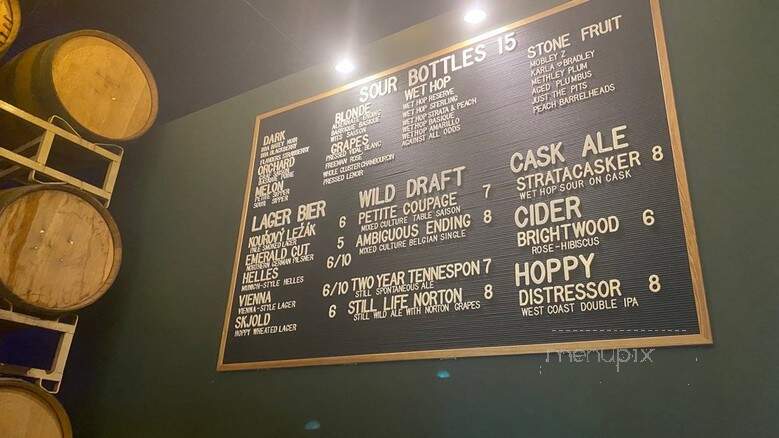 SOUR BOTTLES 15
DARK
FLANDERS STRAWBERRY
ORCHARD
MELON
PETITE SIPPER
SOUR SIPPER
BLONDE
BARRIQUE BASIQUE
WET'S SAISON
GRAPES
PRESSED VIDAL BLANC
FREEMAN ROSE
WHOLE CLUSTER CHAMBOURCIN
PRESSED LENOIR
WET HOP
WET HOP RESERVE
WET HOP STERLING
WET HOP STRATA & PEACH
WET HOP BASIQUE
WET HOP AMARILLO
AGAINST ALL ODDS
STONE FRUIT
MOBLEY Z
KARLA ♡ BRADLEY
METHLEY PLUM
AGED PLUMBUS
JUST THE PITS
PEACH BARRELHEADS
LAGER BIER
NOUROVÝ LEŽÁK 6
PALE SMOKED LAGER
EMERALD CUT 5
NORTHERN GERMAN PILSNER
HELLES 6/10
MUNICH-STYLE HELLES
VIENNA 6/10
VIENNA-STYLE LAGER
SKJOLD 6
HOPPY WHEATED LAGER
WILD DRAFT
PETITE COUPAGE 7
MIXED CULTURE TABLE SAISON
AMBIGUOUS ENDING 8
MIXED CULTURE BELGIAN SINGLE
TWO YEAR TENNESPON 7
STILL SPONTANEOUS ALE
STILL LIFE NORTON 8
STILL WILD ALE WITH NORTON GRAPES
CASK ALE
STRATACASKER 8
WET HOP SOUR ON CASK
CIDER
BRIGHTWOOD 6
ROSE-HIBISCUS
HOPPY
DISTRESSOR 8
WEST COAST DOUBLE IPA
menupix